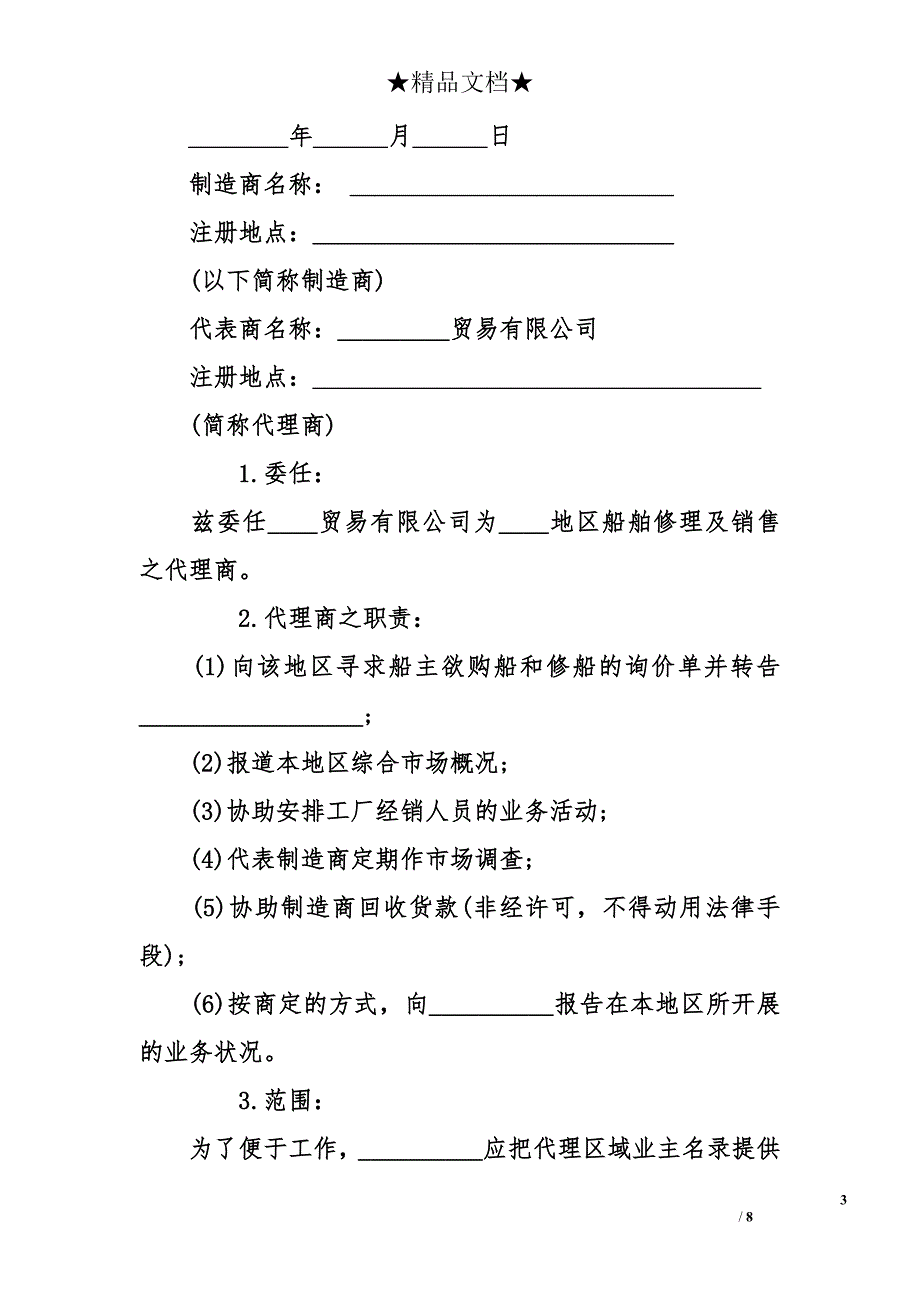 ★精品文档★
________年______月______日
制造商名称： __________________________
注册地点：_____________________________
(以下简称制造商)
代表商名称：_________贸易有限公司
注册地点：____________________________________
(简称代理商)
1.委任：
兹委任____贸易有限公司为____地区船舶修理及销售
之代理商。
2.代理商之职责：
(1)向该地区寻求船主欲购船和修船的询价单并转告
__________________；
(2)报道本地区综合市场概况；
(3)协助安排工厂经销人员的业务活动；
(4)代表制造商定期作市场调查；
(5)协助制造商回收货款(非经许可，不得动用法律手
段)；
(6)按商定的方式，向__________报告在本地区所开展
的业务状况。
3.范围：
为了便于工作，__________应把代理区域业主名录提供
3
/ 8